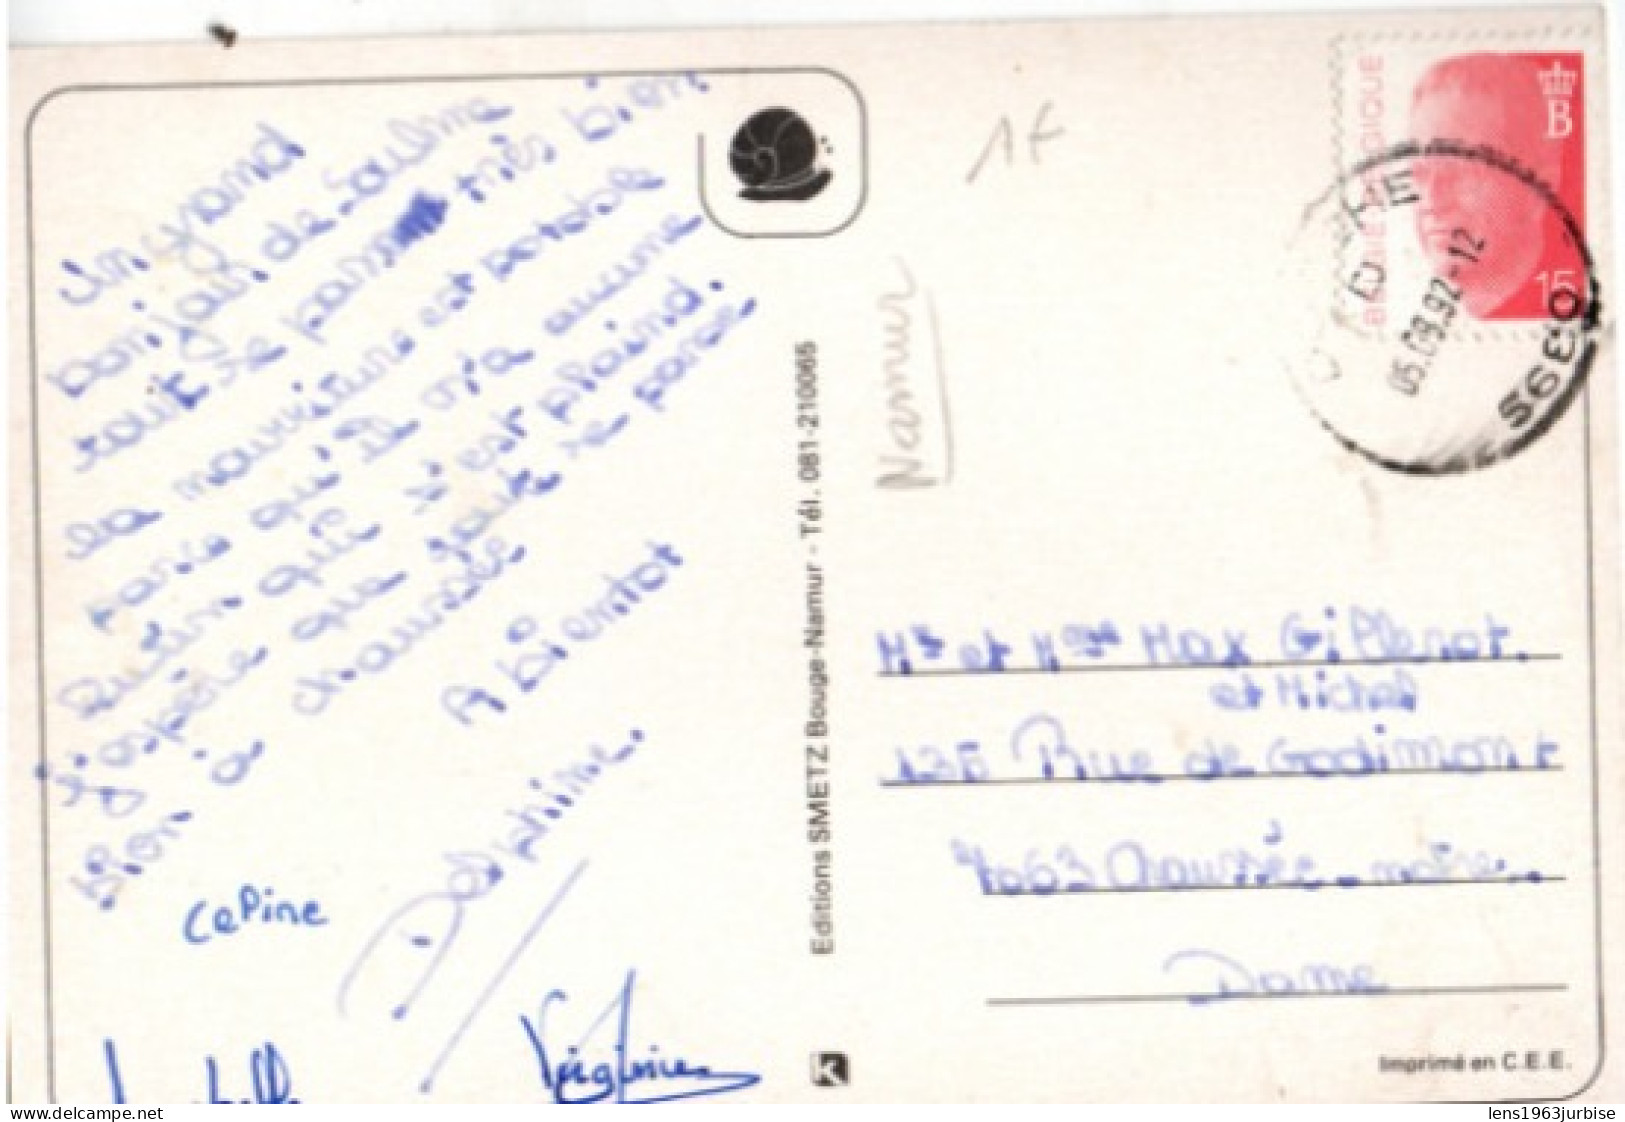 Un grand
bonjour de Soulme
tout se passe très bien
la nourriture est potable
parce qu'il n'a aucune
qui s'est plaind.
J'espère que tout se passe
bien à chaussée
A bientot
Delphine.
Cepine
Virginie
Editions SMETZ Bouge-Namur - Tél. 081-210065
1 F
Namur
BELGIË-BELGIQUE
B
15
05.09.92-12
Mr et Mme Max Gillerot.
et Michel
Rue de Godimont
Chaussée-notre-
Dame
Imprimé en C.E.E.
delcampe.net
lens1963jurbise